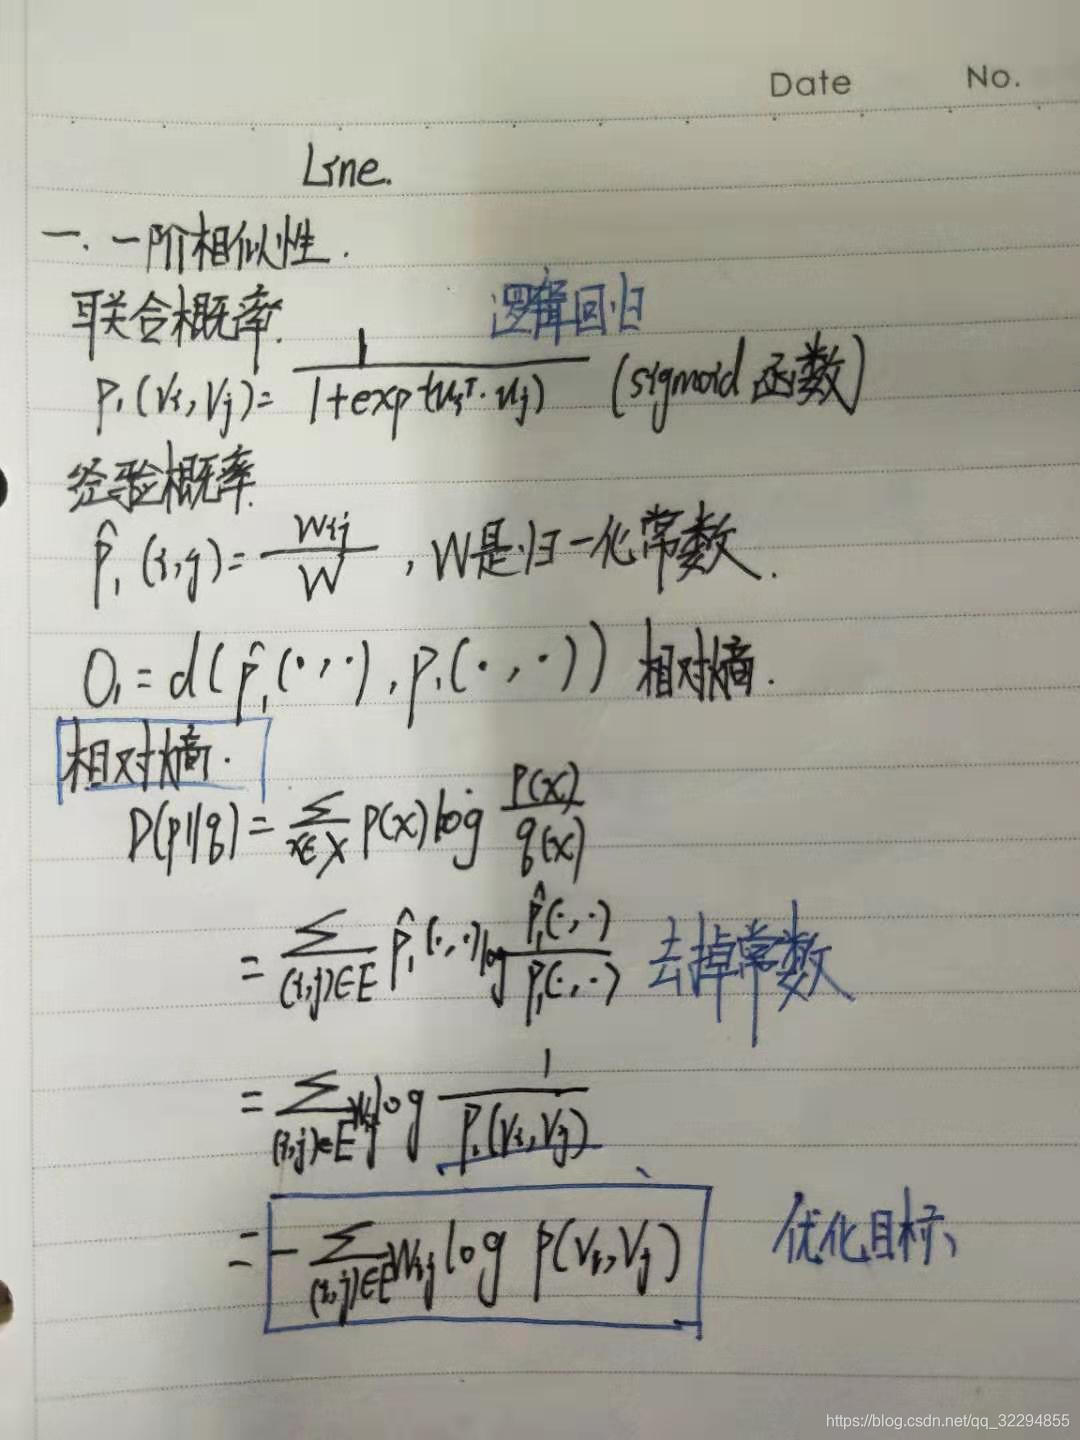 Date No.
Line.
一. 一阶相似性.
联合概率. 逻辑回归
P₁(vᵢ, vⱼ) = 1 / (1+exp(-uᵢᵀ·uⱼ)) (sigmoid 函数)
经验概率.
p̂₁(i,j) = wᵢⱼ / W , W是归一化常数.
O₁ = d(p̂₁(·,·), p₁(·,·)) 相对熵.
相对熵.
D(p||q) = Σ_{x∈X} p(x) log p(x)/q(x)
= Σ_{(i,j)∈E} p̂₁(·,·) log p̂₁(·,·)/p₁(·,·) 去掉常数
= Σ_{(i,j)∈E} wᵢⱼ log 1/P₁(vᵢ,vⱼ)
= -Σ_{(i,j)∈E} wᵢⱼ log p(vᵢ,vⱼ) 优化目标、
https://blog.csdn.net/qq_32294855